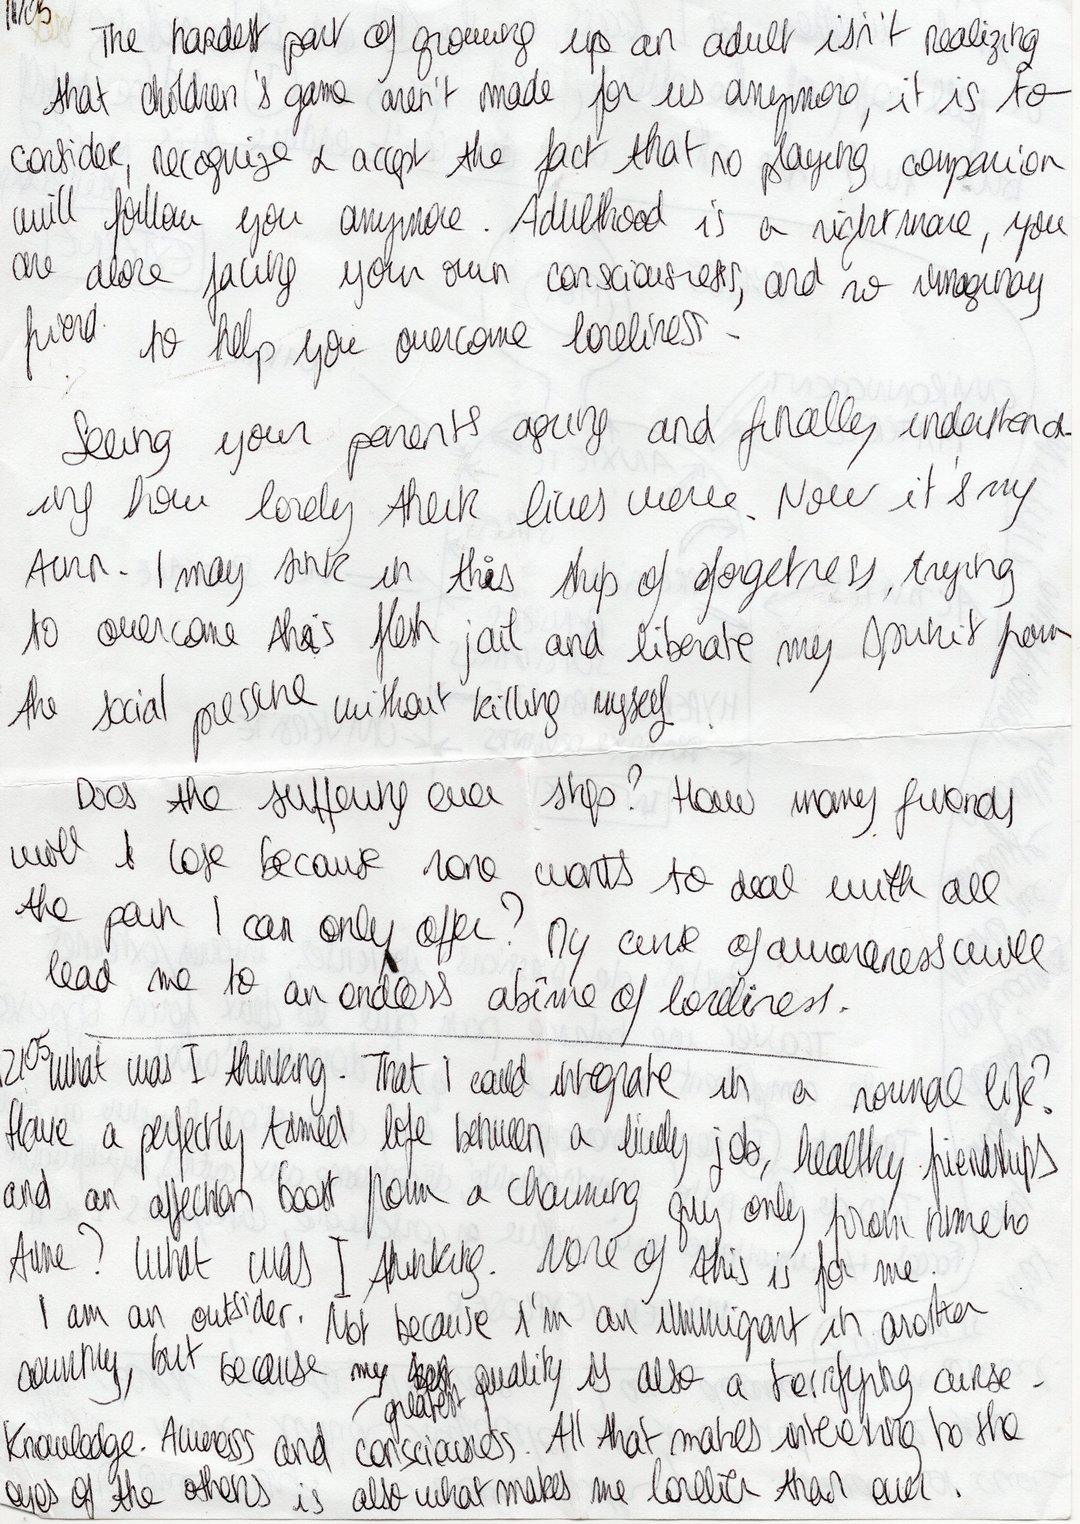 11/05
The hardest part of growing up an adult isn't realizing
that children's game aren't made for us anymore, it is to
consider, recognize & accept the fact that no playing companion
will follow you anymore. Adulthood is a nightmare, you
are alone facing your own consciousness, and no imaginary
friend to help you overcome loneliness.
Seeing your parents aging and finally understand-
ing how lonely their lives were. Now it's my
turn. I may sink in this ship of forgetness, trying
to overcome this flesh jail and liberate my spirit from
the social pressure without killing myself.
Does the suffering ever stops? How many friends
will I lose because none wants to deal with all
the pain I can only offer? My curse of awareness will
lead me to an endless abîme of loneliness.
12/05 What was I thinking. That I could integrate in a normal life?
Have a perfectly tamed life between a lively job, healthy friendships
and an affection boost from a charming guy only from time to
time? What was I thinking. None of this is for me.
I am an outsider. Not because I'm an immigrant in another
country, but because my greatest quality is also a terrifying curse.
Knowledge. Awareness and consciousness. All that makes interesting to the
eyes of the others is also what makes me lonelier than ever.